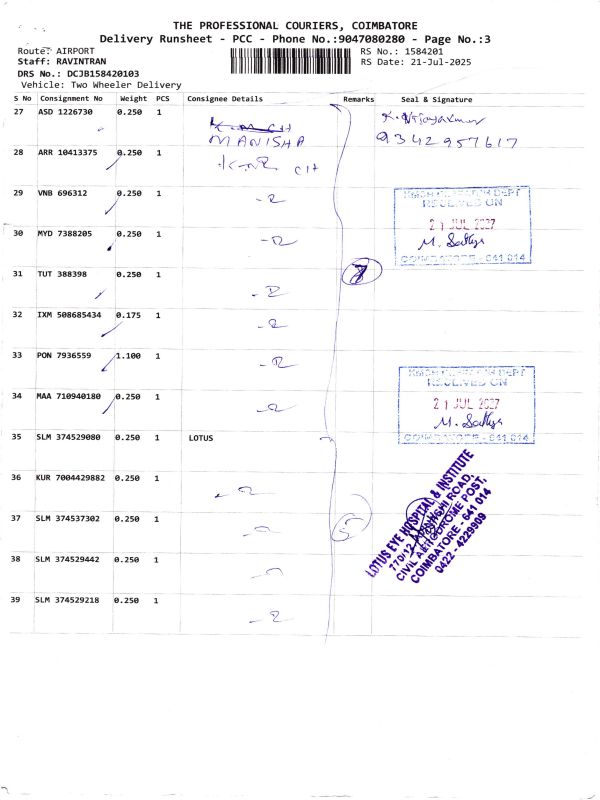 THE PROFESSIONAL COURIERS, COIMBATORE
Delivery Runsheet - PCC - Phone No.:9047080280 - Page No.:3
Route: AIRPORT
RS No.: 1584201
Staff: RAVINTRAN
RS Date: 21-Jul-2025
DRS No.: DCJB158420103
Vehicle: Two Wheeler Delivery
S No Consignment No Weight PCS Consignee Details Remarks Seal & Signature
27 ASD 1226730 0.250 1 K.M CH
MANISHA
K. Vijayakumar
9342957617
28 ARR 10413375 0.250 1 CH
29 VNB 696312 0.250 1
RECEIVED ON
21 JUL 2027
M. Sathya
COIMBATORE - 641 014
30 MYD 7388205 0.250 1
31 TUT 388398 0.250 1
7
32 IXM 508685434 0.175 1
33 PON 7936559 1.100 1
34 MAA 710940180 0.250 1
RECEIVED ON
21 JUL 2027
M. Sathya
COIMBATORE - 641 014
35 SLM 374529080 0.250 1 LOTUS
36 KUR 7004429882 0.250 1
37 SLM 374537302 0.250 1
5
LOTUS EYE HOSPITAL & INSTITUTE
770/12, AVINASHI ROAD,
CIVIL AERODROME POST,
COIMBATORE - 641 014
0422 - 4229909
38 SLM 374529442 0.250 1
39 SLM 374529218 0.250 1